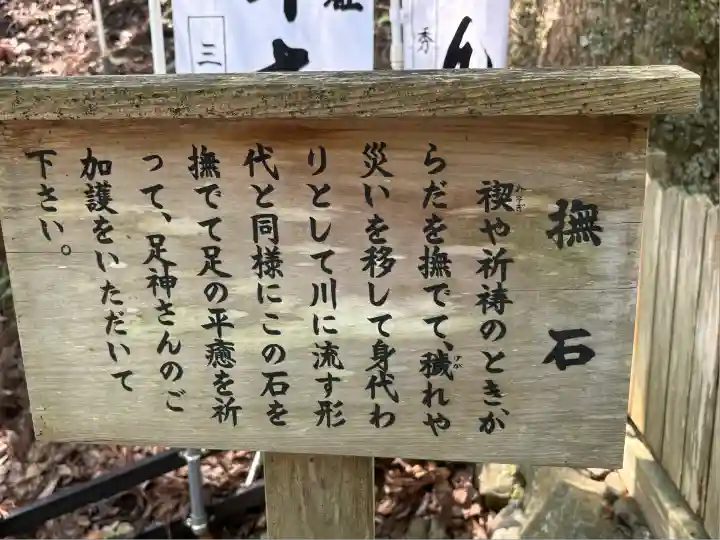 撫石
禊や祈祷のときか
らだを撫でて、穢れや
災いを移して身代わ
りとして川に流す形
代と同様にこの石を
撫でて足の平癒を祈
って、足神さんのご
加護をいただいて
下さい。
みそぎ
けが
三
秀